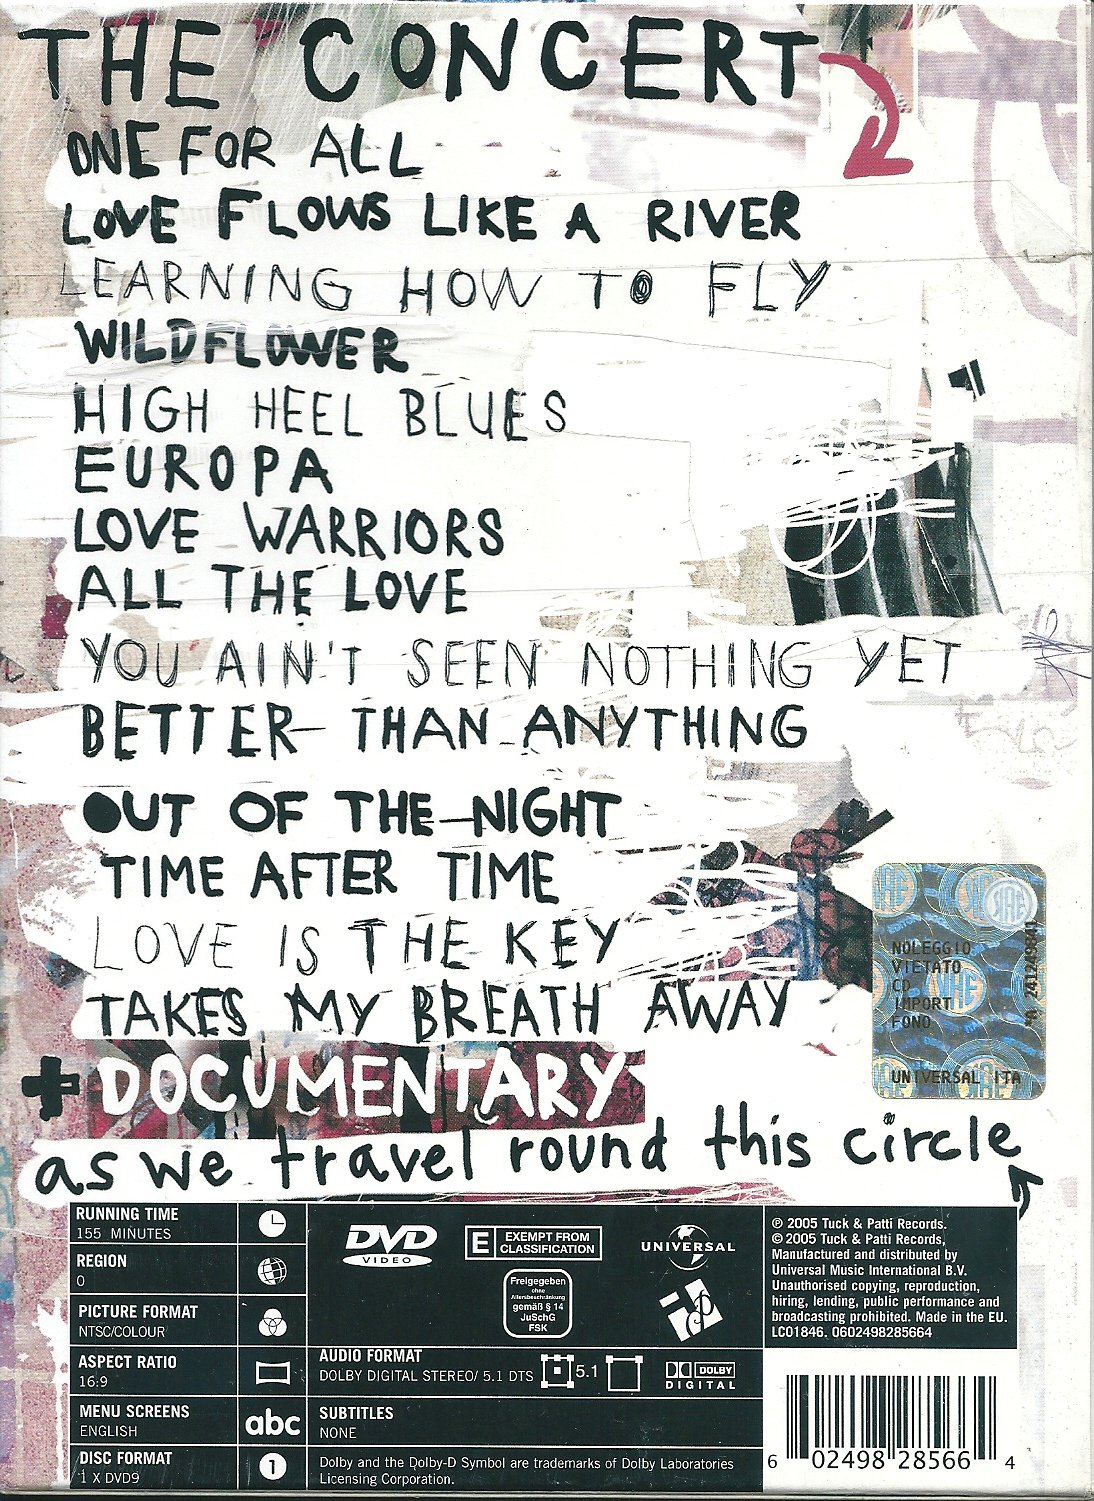 THE CONCERT
ONE FOR ALL
LOVE FLOWS LIKE A RIVER
LEARNING HOW TO FLY
WILDFLOWER
HIGH HEEL BLUES
EUROPA
LOVE WARRIORS
ALL THE LOVE
YOU AIN'T SEEN NOTHING YET
BETTER THAN ANYTHING
OUT OF THE NIGHT
TIME AFTER TIME
LOVE IS THE KEY
TAKES MY BREATH AWAY
+ DOCUMENTARY
as we travel round this circle
NOLEGGIO
VIETATO
CD
IMPORT
FONO
UNIVERSAL ITA
RUNNING TIME
155 MINUTES
REGION
0
PICTURE FORMAT
NTSC/COLOUR
ASPECT RATIO
16:9
MENU SCREENS
ENGLISH
abc
DISC FORMAT
1 X DVD9
1
DVD
VIDEO
E EXEMPT FROM
CLASSIFICATION
UNIVERSAL
Freigegeben
ohne
Altersbeschränkung
gemäß § 14
JuSchG
FSK
t&p
AUDIO FORMAT
DOLBY DIGITAL STEREO/ 5.1 DTS
5.1
DOLBY
DIGITAL
SUBTITLES
NONE
Dolby and the Dolby-D Symbol are trademarks of Dolby Laboratories
Licensing Corporation.
℗ 2005 Tuck & Patti Records.
© 2005 Tuck & Patti Records,
Manufactured and distributed by
Universal Music International B.V.
Unauthorised copying, reproduction,
hiring, lending, public performance and
broadcasting prohibited. Made in the EU.
LC01846. 0602498285664
6 02498 28566 4